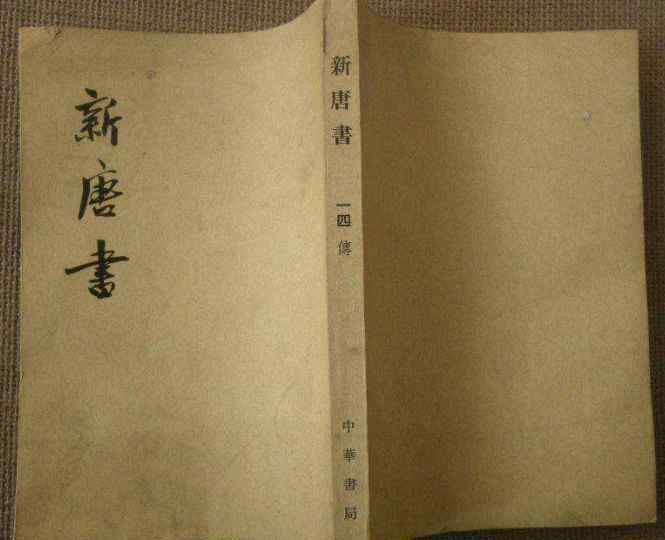 新唐書
新唐書
一四
傳
中華書局